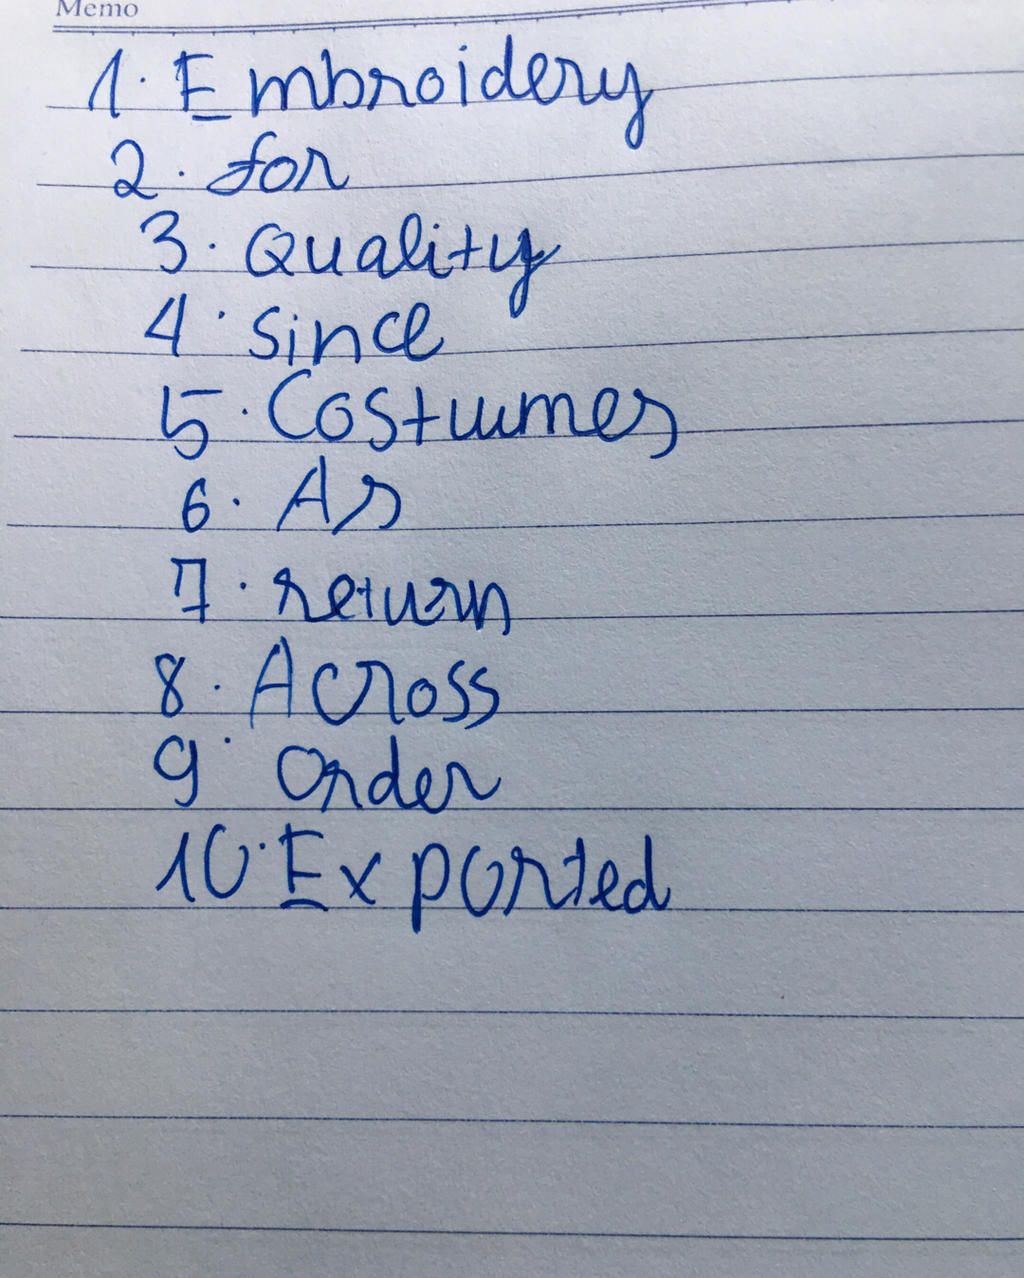 Memo
1. Embroidery
2. for
3. Quality
4. since
5. Costumes
6. As
7. return
8. Across
9. Order
10. Exported